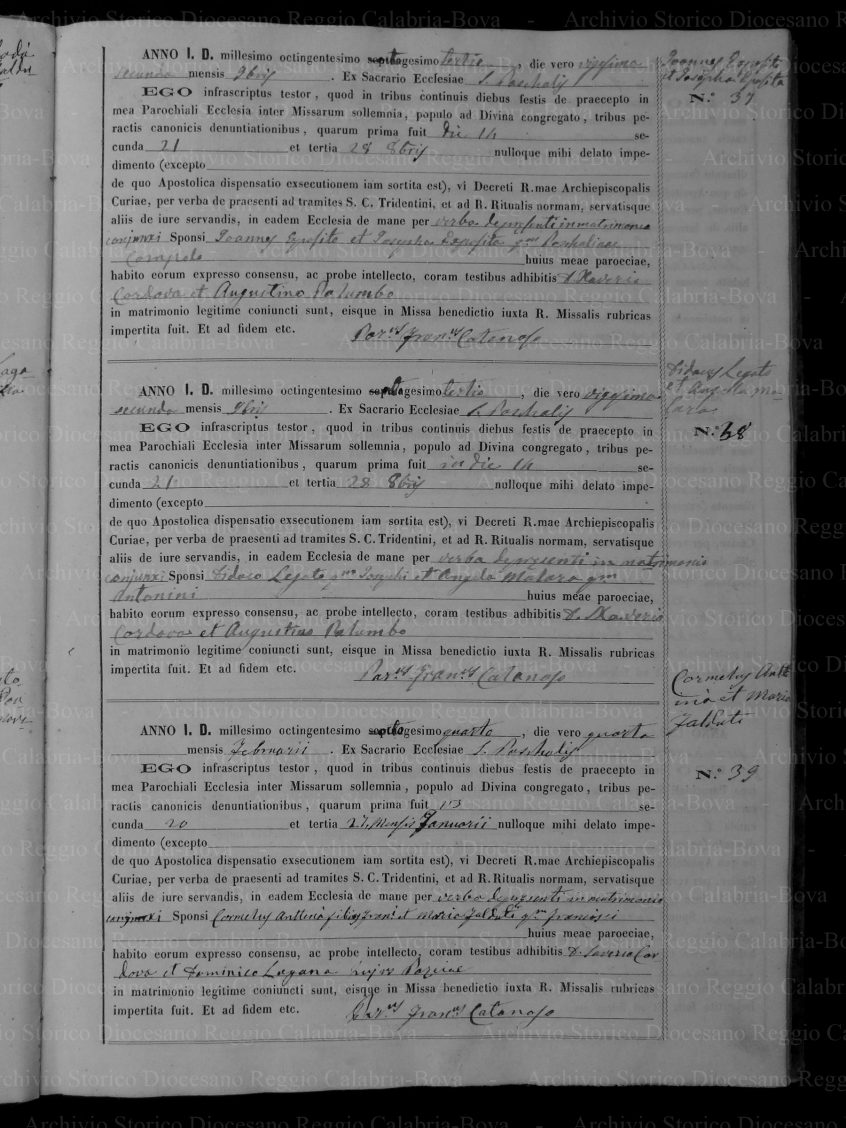 Archivio Storico Diocesano Reggio Calabria-Bova - Archivio Storico Diocesano Reggio Calabria-Bova
ANNO I. D. millesimo octingentesimo septuagesimo tertio, die vero vigesima
secunda mensis 9bris. Ex Sacrario Ecclesiae S. Paschalis
EGO infrascriptus testor, quod in tribus continuis diebus festis de praecepto in
mea Parochiali Ecclesia inter Missarum sollemnia, populo ad Divina congregato, tribus pe-
ractis canonicis denuntiationibus, quarum prima fuit die 14 se-
cunda 21 et tertia 28 8bris nulloque mihi delato impe-
dimento (excepto
de quo Apostolica dispensatio exsecutionem iam sortita est), vi Decreti R.mae Archiepiscopalis
Curiae, per verba de praesenti ad tramites S. C. Tridentini, et ad R. Ritualis normam, servatisque
aliis de iure servandis, in eadem Ecclesia de mane per verba de presenti in matrimonio
conjunxi Sponsi Joannes Esposito et Josepha Esposito qm
huius meae paroeciae,
habito eorum expresso consensu, ac probe intellecto, coram testibus adhibitis D. Xaverio
Cordova et Augustino Palumbo
in matrimonio legitime coniuncti sunt, eisque in Missa benedictio iuxta R. Missalis rubricas
impertita fuit. Et ad fidem etc. Par.us Fran.us Catanoso
Joannes Esposito
et Josepha Esposito
N.º 37
ANNO I. D. millesimo octingentesimo septuagesimo tertio, die vero vigesima
secunda mensis 9bris. Ex Sacrario Ecclesiae S. Paschalis
EGO infrascriptus testor, quod in tribus continuis diebus festis de praecepto in
mea Parochiali Ecclesia inter Missarum sollemnia, populo ad Divina congregato, tribus pe-
ractis canonicis denuntiationibus, quarum prima fuit in die 14 se-
cunda 21 et tertia 28 8bris nulloque mihi delato impe-
dimento (excepto
de quo Apostolica dispensatio exsecutionem iam sortita est), vi Decreti R.mae Archiepiscopalis
Curiae, per verba de praesenti ad tramites S. C. Tridentini, et ad R. Ritualis normam, servatisque
aliis de iure servandis, in eadem Ecclesia de mane per verba de presenti in matrimonio
conjunxi Sponsi Didaco Legato qm Josephi et Angela Malara qm
Antonini huius meae paroeciae,
habito eorum expresso consensu, ac probe intellecto, coram testibus adhibitis D. Xaverio
Cordova et Augustino Palumbo
in matrimonio legitime coniuncti sunt, eisque in Missa benedictio iuxta R. Missalis rubricas
impertita fuit. Et ad fidem etc. Par.us Fran.us Catanoso
Didacus Legato
et Angela Ma-
lara
N.º 38
ANNO I. D. millesimo octingentesimo septuagesimo quarto, die vero quarta
mensis Februarii. Ex Sacrario Ecclesiae S. Paschalis
EGO infrascriptus testor, quod in tribus continuis diebus festis de praecepto in
mea Parochiali Ecclesia inter Missarum sollemnia, populo ad Divina congregato, tribus pe-
ractis canonicis denuntiationibus, quarum prima fuit 13 se-
cunda 20 et tertia 27 Mensis Januarii nulloque mihi delato impe-
dimento (excepto
de quo Apostolica dispensatio exsecutionem iam sortita est), vi Decreti R.mae Archiepiscopalis
Curiae, per verba de praesenti ad tramites S. C. Tridentini, et ad R. Ritualis normam, servatisque
aliis de iure servandis, in eadem Ecclesia de mane per verba de presenti in matrimonio
conjunxi Sponsi Carmelus filius Fran.i et Maria Falduti qm Francisci
huius meae paroeciae,
habito eorum expresso consensu, ac probe intellecto, coram testibus adhibitis D. Saverio Cor
dova et Dominico Lagana
in matrimonio legitime coniuncti sunt, eisque in Missa benedictio iuxta R. Missalis rubricas
impertita fuit. Et ad fidem etc. Par.us Fran.us Catanoso
Carmelus
et Maria
Falduti
N.º 39